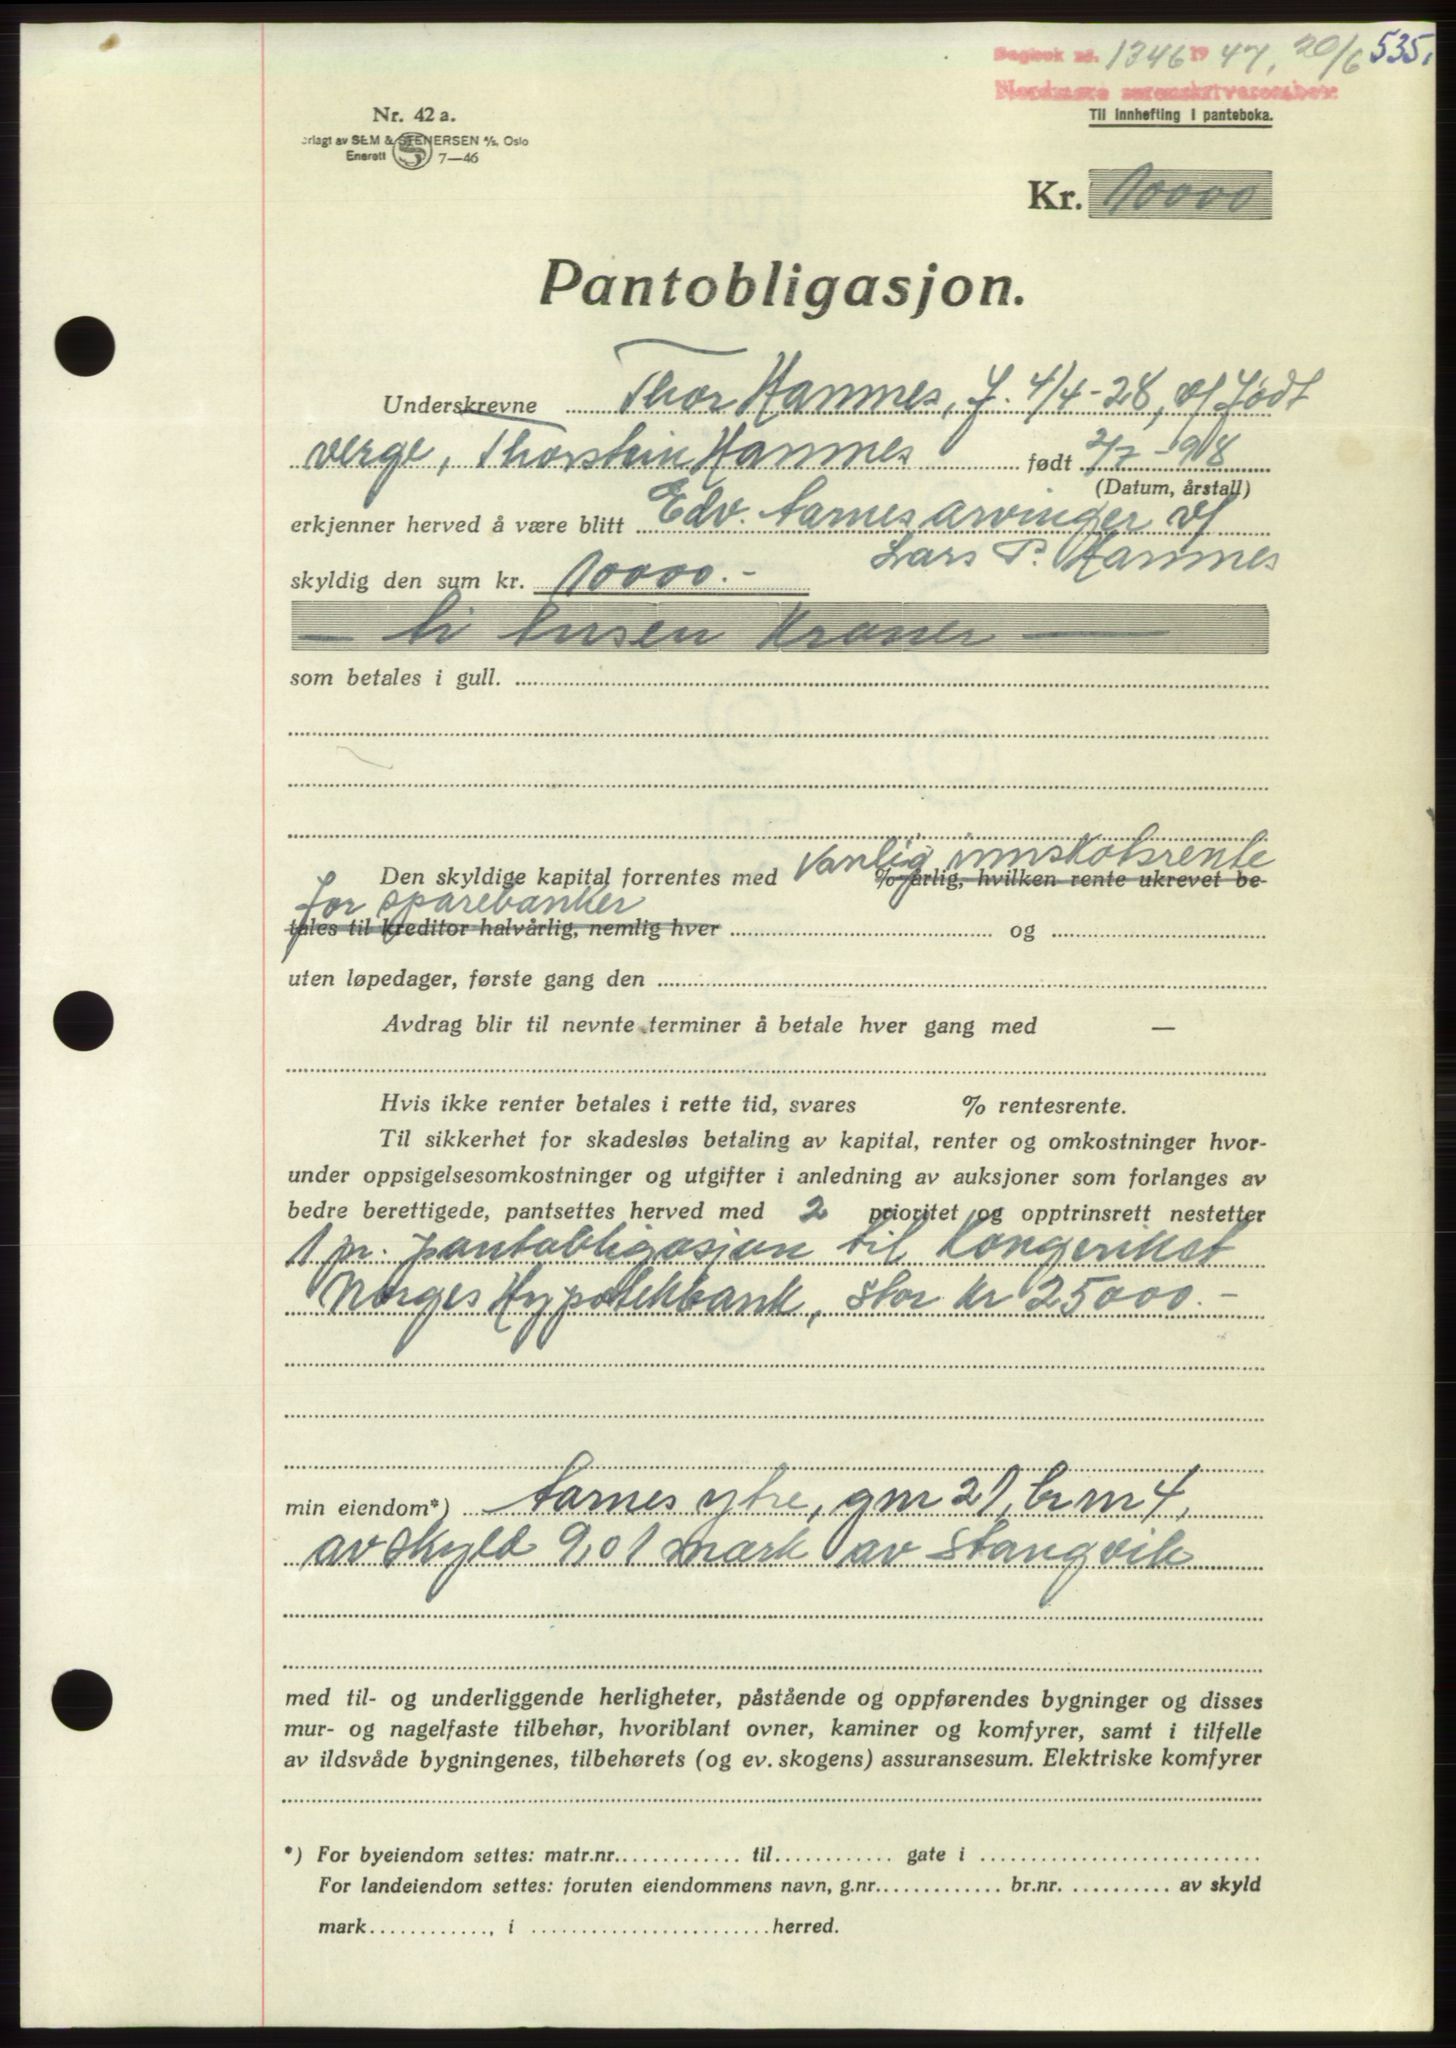 Dagbok nr. 1346 19 47, 20/6 535.
Nordmøre sorenskriverembete
Nr. 42 a.
Til innhefting i panteboka.
orlagt av SEM & STENERSEN A/S, Oslo
Enerett 7—46
Kr. 10000
Pantobligasjon.
Underskrevne Thor Hamnes, f. 4/4-28, v/ født
verge, Thorstein Hamnes født 2/7-1918
(Datum, årstall)
erkjenner herved å være blitt Edv. Aarnes arvinger v/
Lars P. Hamnes
skyldig den sum kr. 10000.-
— ti tusen kroner —
som betales i gull.
Den skyldige kapital forrentes med vanlig innskotsrente % årlig, hvilken rente ukrevet be-
for sparebanker
tales til kreditor halvårlig, nemlig hver og
uten løpedager, første gang den
Avdrag blir til nevnte terminer å betale hver gang med —
Hvis ikke renter betales i rette tid, svares % rentesrente.
Til sikkerhet for skadesløs betaling av kapital, renter og omkostninger hvor-
under oppsigelsesomkostninger og utgifter i anledning av auksjoner som forlanges av
bedre berettigede, pantsettes herved med 2 prioritet og opptrinsrett nestetter
1 pr. pantobligasjon til Kongeriket
Norges Hypotekbank, stor kr 25000.-
min eiendom*) Aarnes ytre, gnr 21, br nr 4,
av skyld 9,01 mark av Stangvik
med til- og underliggende herligheter, påstående og oppførendes bygninger og disses
mur- og nagelfaste tilbehør, hvoriblant ovner, kaminer og komfyrer, samt i tilfelle
av ildsvåde bygningenes, tilbehørets (og ev. skogens) assuransesum. Elektriske komfyrer
*) For byeiendom settes: matr.nr. til gate i
For landeiendom settes: foruten eiendommens navn, g.nr. br.nr. av skyld
mark, i herred.